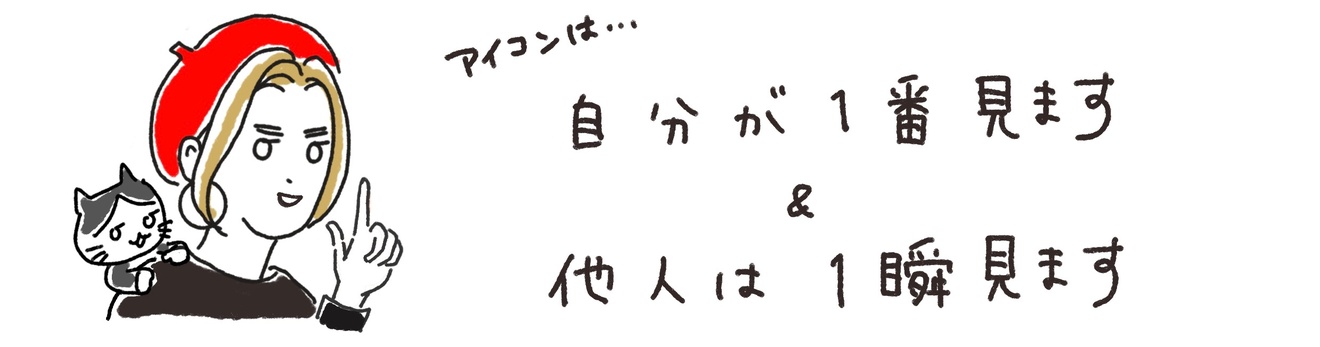 アイコンは…
自分が1番見ます
&
他人は1瞬見ます